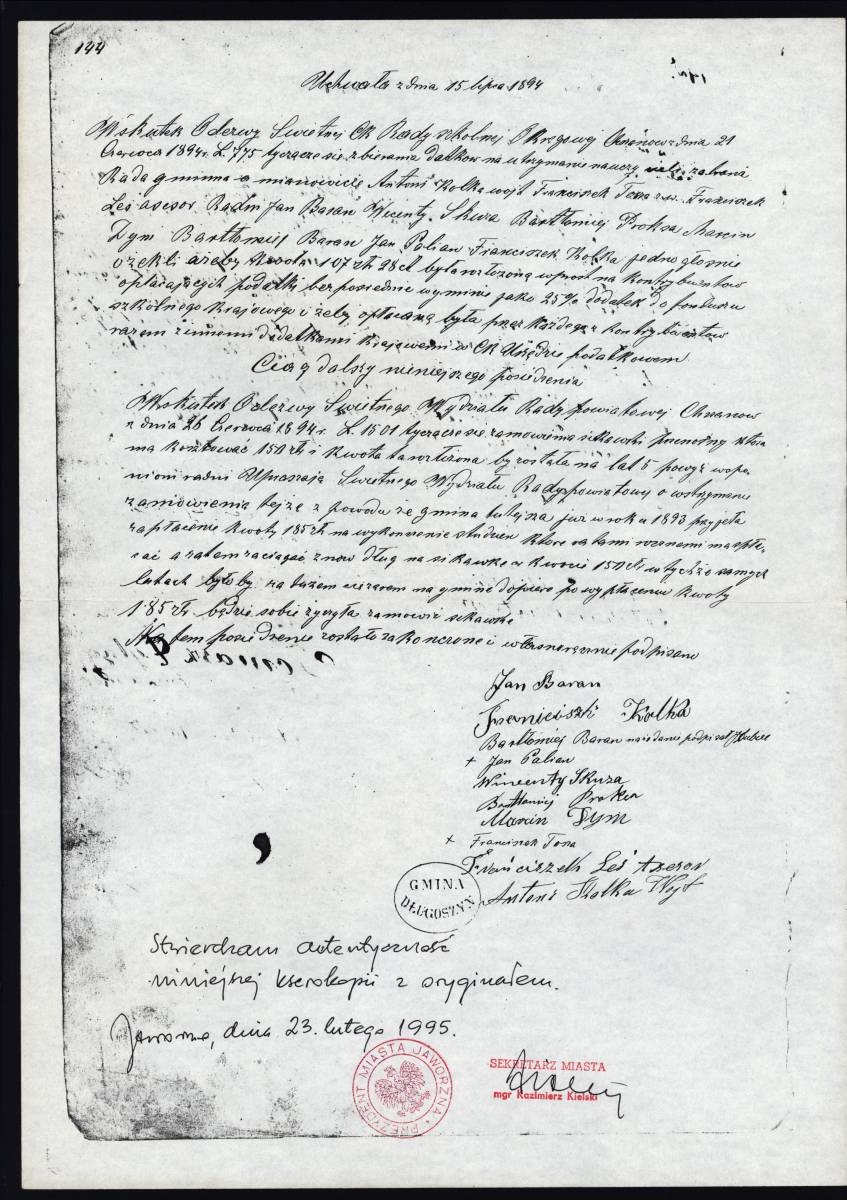 144
Uchwała z dnia 15 lipca 1894
Wskutek Odezwy Swietnej CK Rady szkolnej Okręgowej Chrzanow z dnia 21
Czerwca 1894r. L. 775 tyczące się zbierania datkow na utrzymanie nauczycieli zebrana
Rada gminna a mianowicie Antoni Kolka wojt Franciszek Tosza Franciszek
Leś asesor Radni Jan Baran Wicenty Skuza Bartłomiej Proksa Marcin
Dym Bartłomiej Baran Jan Palian Franciszek Kolka jednogłosnie
orzekli azeby kwota 107 zł 28 ct była rozłożoną wprost na kontrybuentow
opłacających podatki bezposrednie wyminie jako 25% dodatek do funduszu
szkólnego krajowego i żeby opłacaną była przez każdego z kontrybuentow
razem z innemi dodatkami krajowemi w CK Urzędzie podatkowem
Ciąg dalszy niniejszego posiedzenia
Wskutek Odezwy Swietnego Wydziału Rady powiatowej Chrzanow
z dnia 26 Czerwca 1894 r. L. 1501 tyczące się zamowienia sikawki przenośny ktora
ma kosztować 150 zł i kwota ta rozłżona by została na lat 5 powyż wspo
mnioni radni Upraszają Swietnego Wydziału Rady powiatowej o wstrzymanie
zamówienia tejże z powodu że gmina tutejsza już w roku 1893 przyjęła
zapłacenie kwoty 185 zł na wykończenie studzien ktore ratami rocznemi ma spła
cać a zatem zaciągać znow dług na sikawke w kwocie 150 zł w tychże samych
latach było by za dużem ciężarem na gmine dopiero po wypłaceniu kwoty
185 zł będzie sobie życzyła zamowić sikawkę
Na tem posiedzenie zostało zakonczone i własnoręcznie podpisano
Jan Baran
Franciszk Kolka
Bartłomiej Baran na żądanie podpisał
+ Jan Palian
Wincenty Skuza
Bartłomiej Proksa
Marcin Dym
+ Franciszek Tosza
Franciszek Leś Asesor
Antoni Kolka Wojt
GMINA
DŁUGOSZYN
Stwierdzam autentyczność
niniejszej kserokopii z oryginałem.
Jaworzno, dnia 23. lutego 1995.
PREZYDENT MIASTA JAWORZNA
SEKRETARZ MIASTA
mgr Kazimierz Kielski